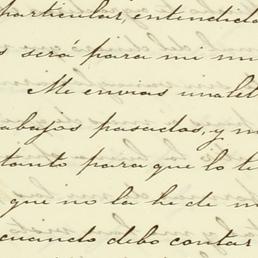 particular, entendido
s será para mi mu
Me envias una let
abajos pasados, y m
tanto para que lo te
que no la he de m
cuando debo contar